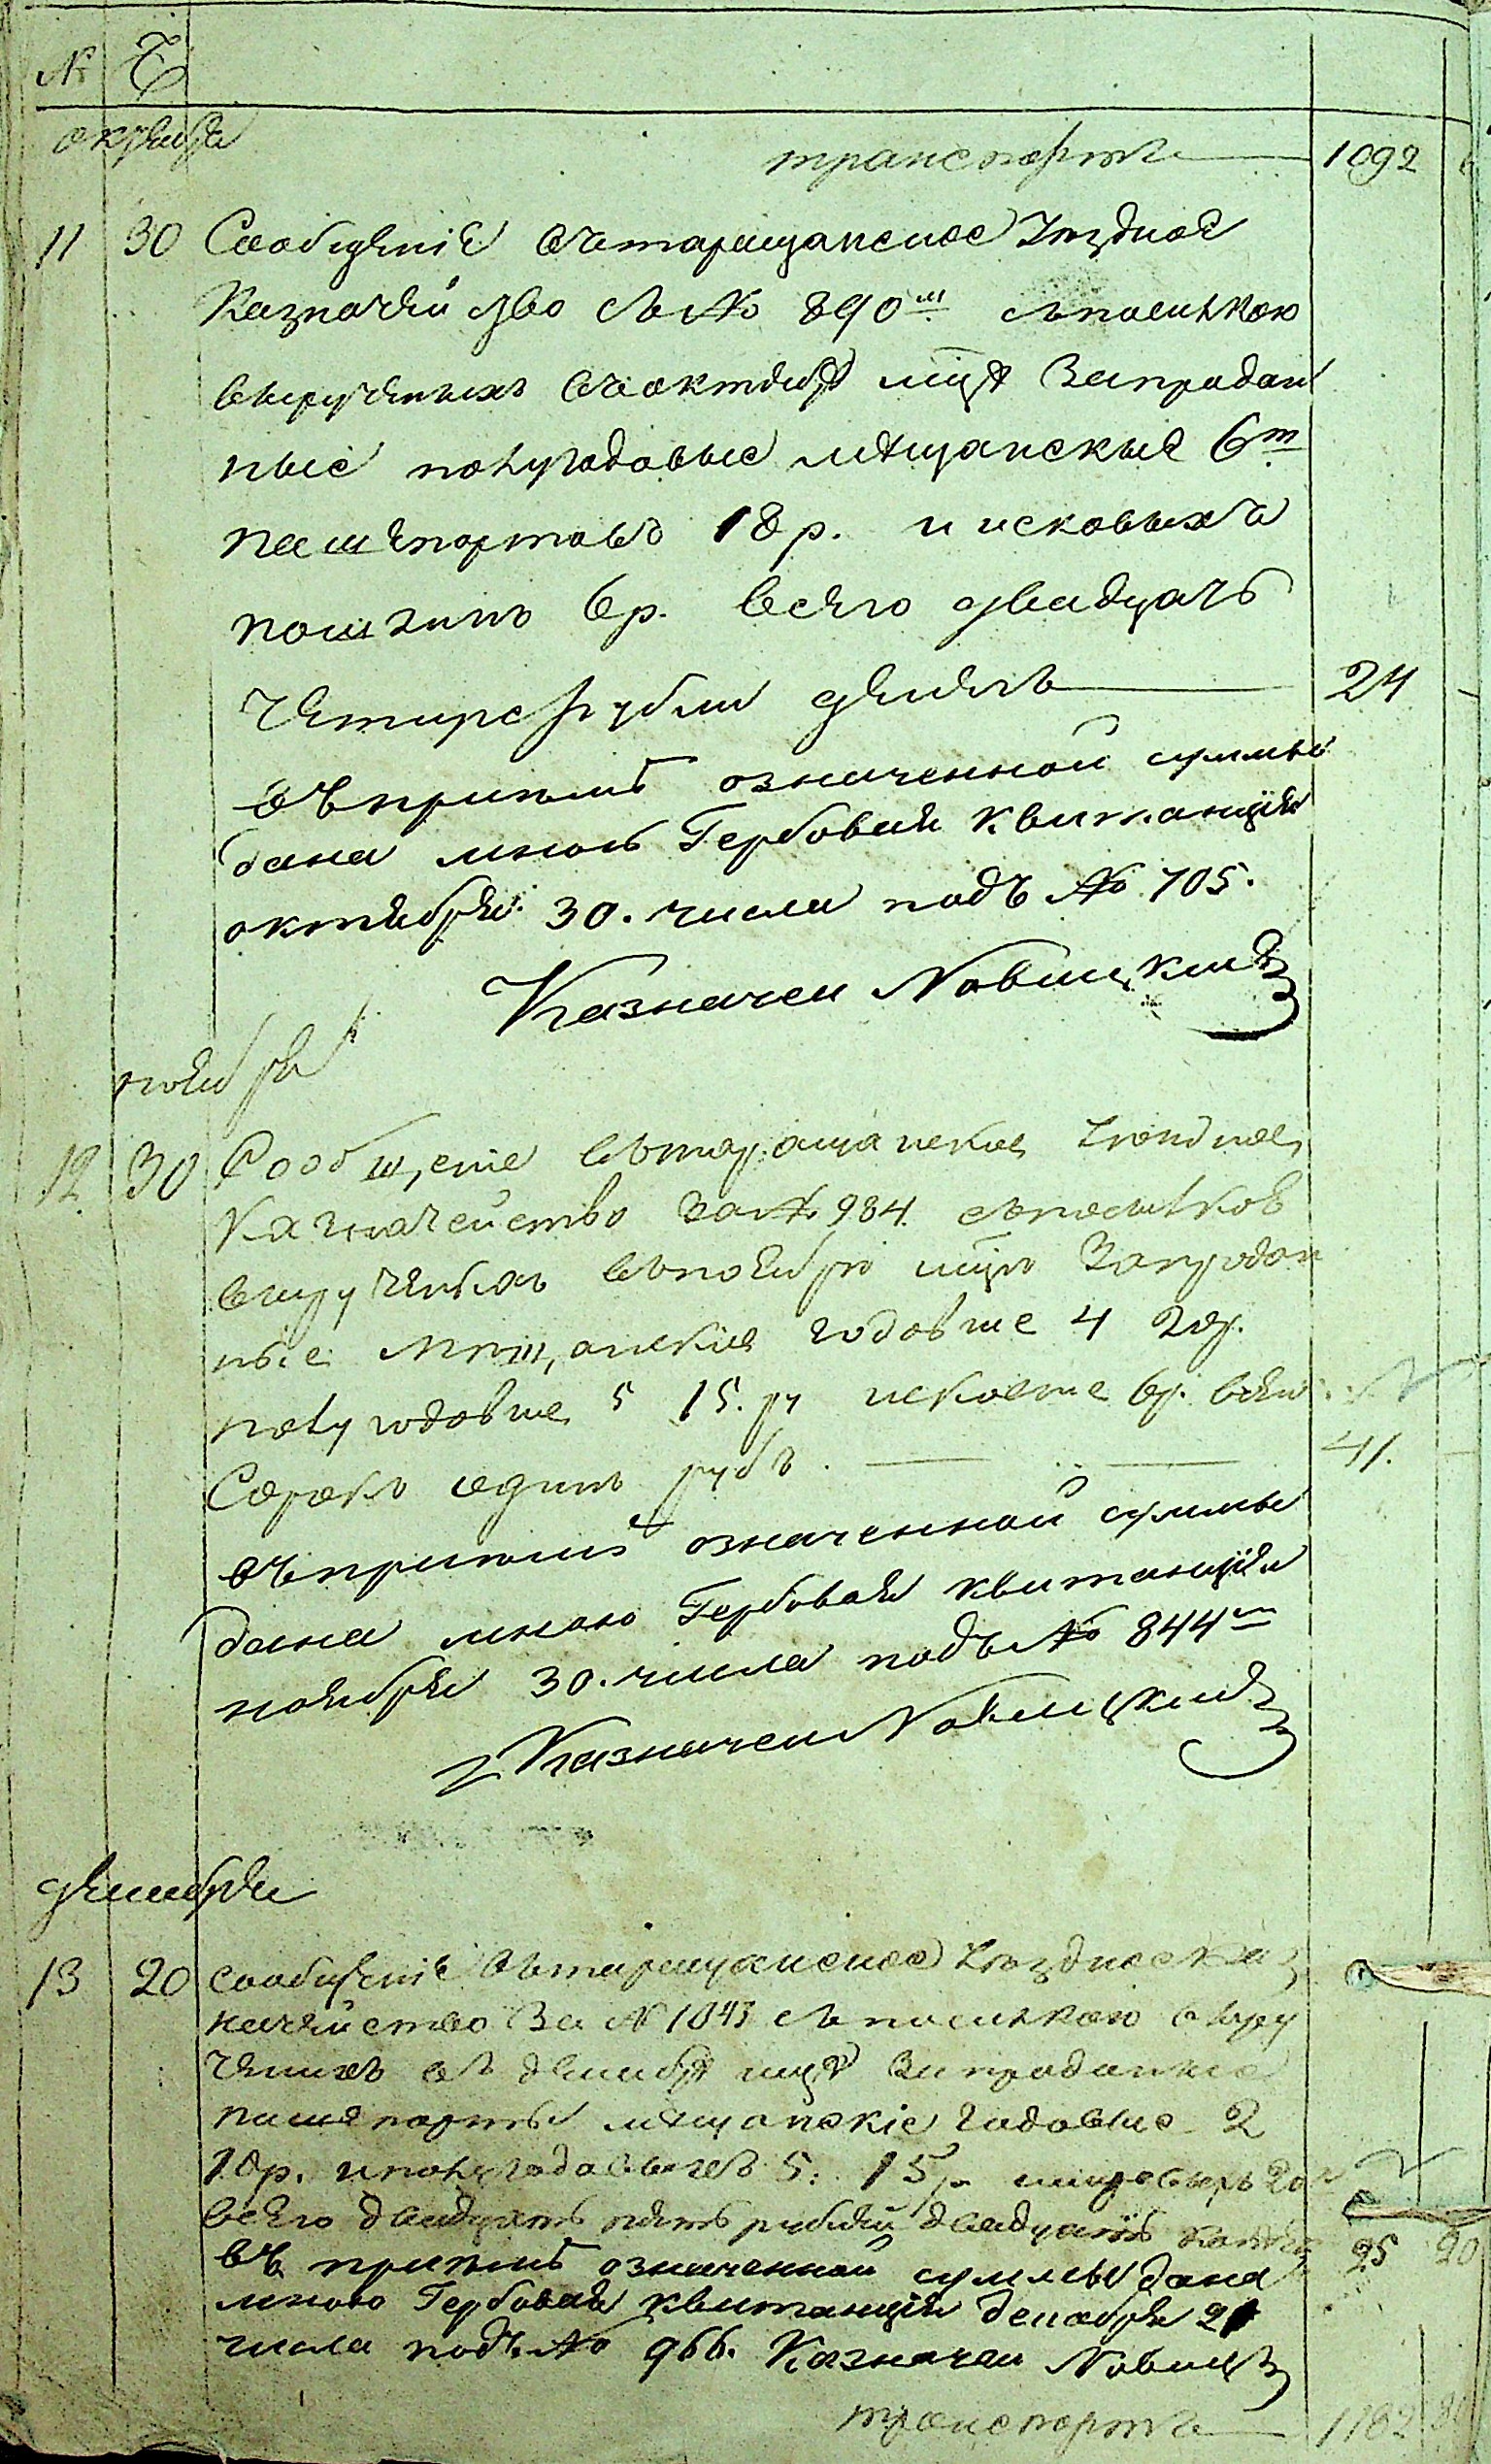 № Ч
октября
транспортъ 1092
11 30 Сообщение вътаращанское Уездное
Казначейство за № 890м съпосилкою
вырученыхъ въоктябрѣ мцѣ Запродан
ные полугодовые мѣщанские 6т
пашепортовъ 18 р. и исковыхъ
пошлинъ 6 р. всего двадцать
четире рубли денегъ 24
въ приемѣ означенной суммы
дана мною Гербовая Квитанція
октября 30. числа подъ № 705.
Казначей Новицкий
ноября
12. 30 Сообщение вътаращанское Уездное
Казначейство за № 934. съпосилкою
вырученыхъ въноябрѣ мцѣ Запродан
ные Мѣщанские годовые 4 20 р.
полугодовые 5 15. ру исковые 6 р. всего
Сорокъ одинъ рубъ. 41.
въ приемѣ означенной суммы
дана мною Гербовая квитанція
ноября 30. числа подъ № 844м
Казначей Новицкий
декабря
13 20 сообщеніе вътаращанское Уездное каз
начейство За № 1043 съ посилкою выру
ченихъ въ декабрѣ мцѣ Запродание
пашепорты мѣщанскіе годовые 2
10 р. иполугодовыхъ 5. 15 р.
всего двадцать пять рублей двадцать копѣекъ 25 20
въ приемѣ означенной суммы дана
мною Гербовая квитанція декабря 21
числа подъ № 966. Казначей Новицкий
транспортъ 1182